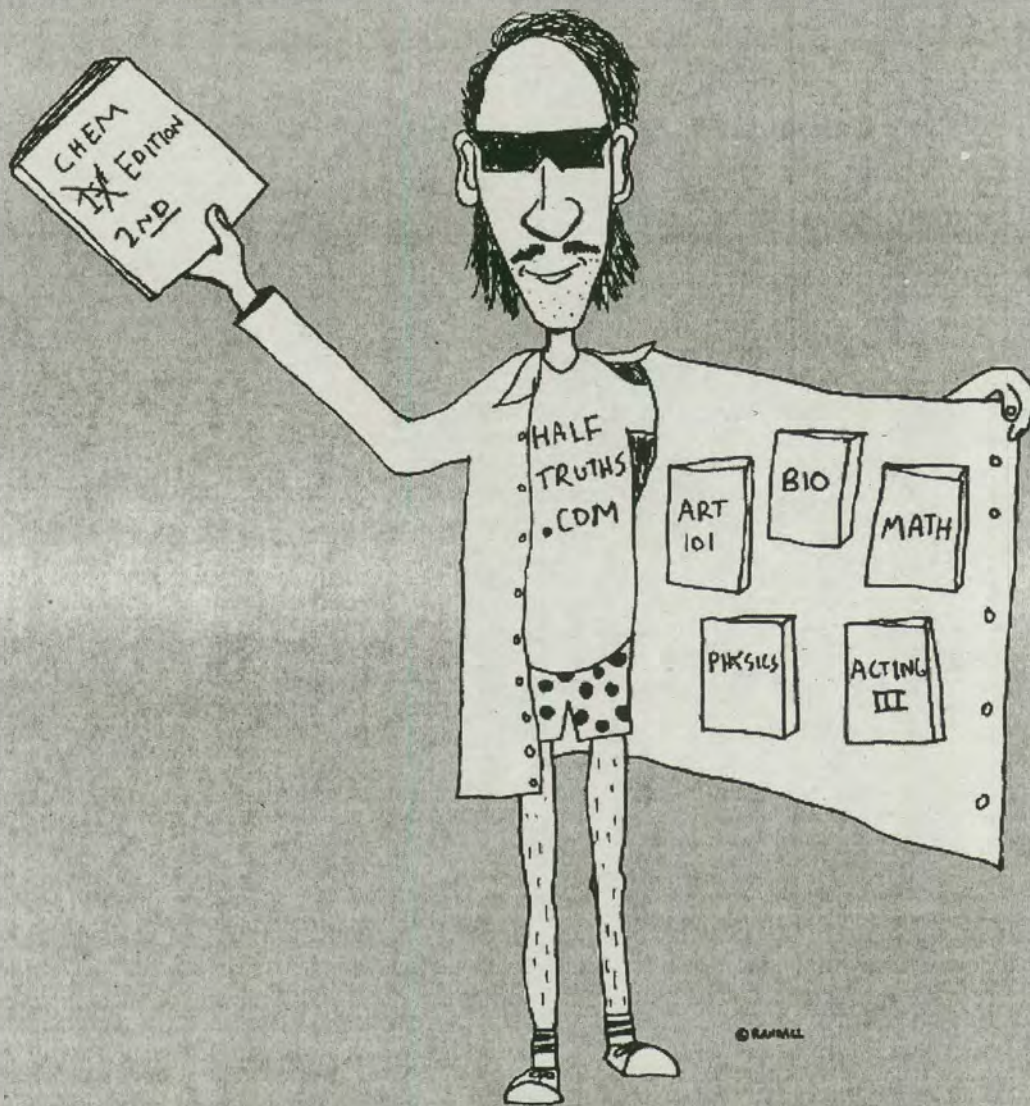 CHEM
1st EDITION
2ND
HALF
TRUTHS
.COM
ART
101
BIO
MATH
PHYSICS
ACTING
III
© RANDALL